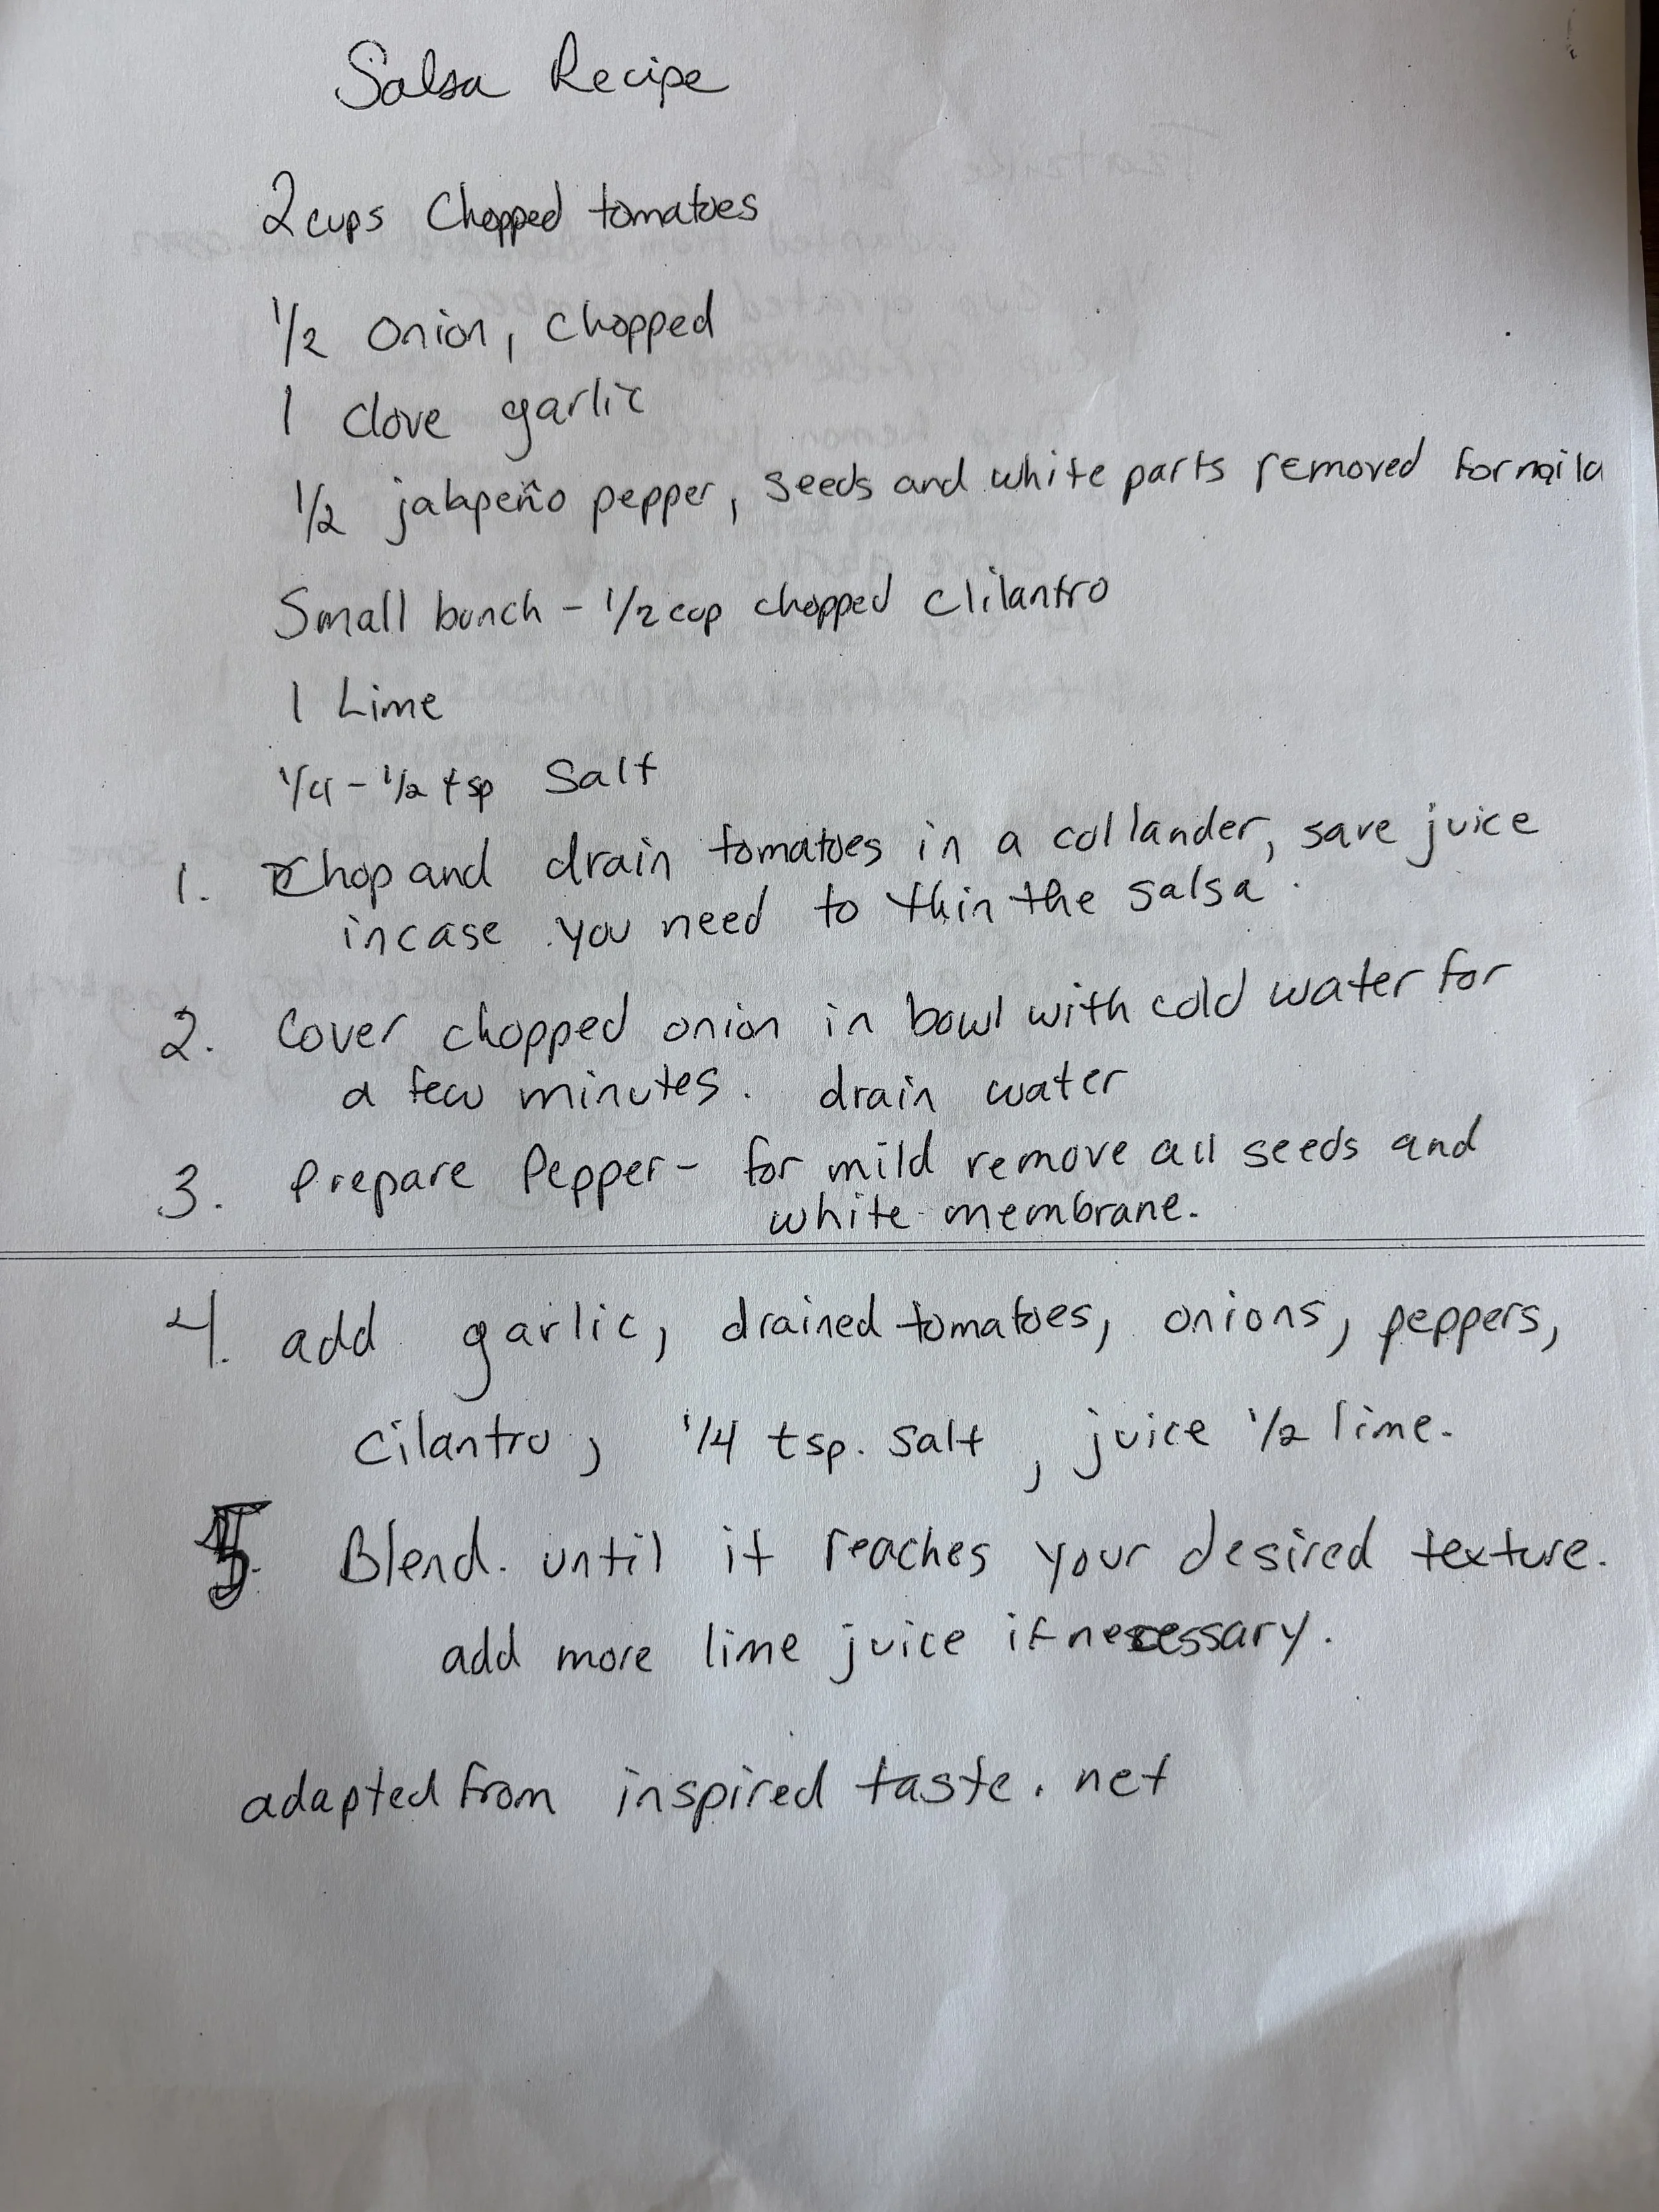 Salsa Recipe
2 cups Chopped tomatoes
1/2 onion, chopped
1 clove garlic
1/2 jalapeño pepper, seeds and white parts removed for mild
Small bunch - 1/2 cup chopped clilantro
1 Lime
1/4 - 1/2 tsp Salt
1. Chop and drain tomatoes in a collander, save juice
incase you need to thin the salsa.
2. Cover chopped onion in bowl with cold water for
a few minutes. drain water
3. Prepare Pepper - for mild remove all seeds and
white membrane.
4. add garlic, drained tomatoes, onions, peppers,
cilantro, 1/4 tsp. salt, juice 1/2 lime.
5. Blend. until it reaches your desired texture.
add more lime juice if necessary.
adapted from inspired taste.net